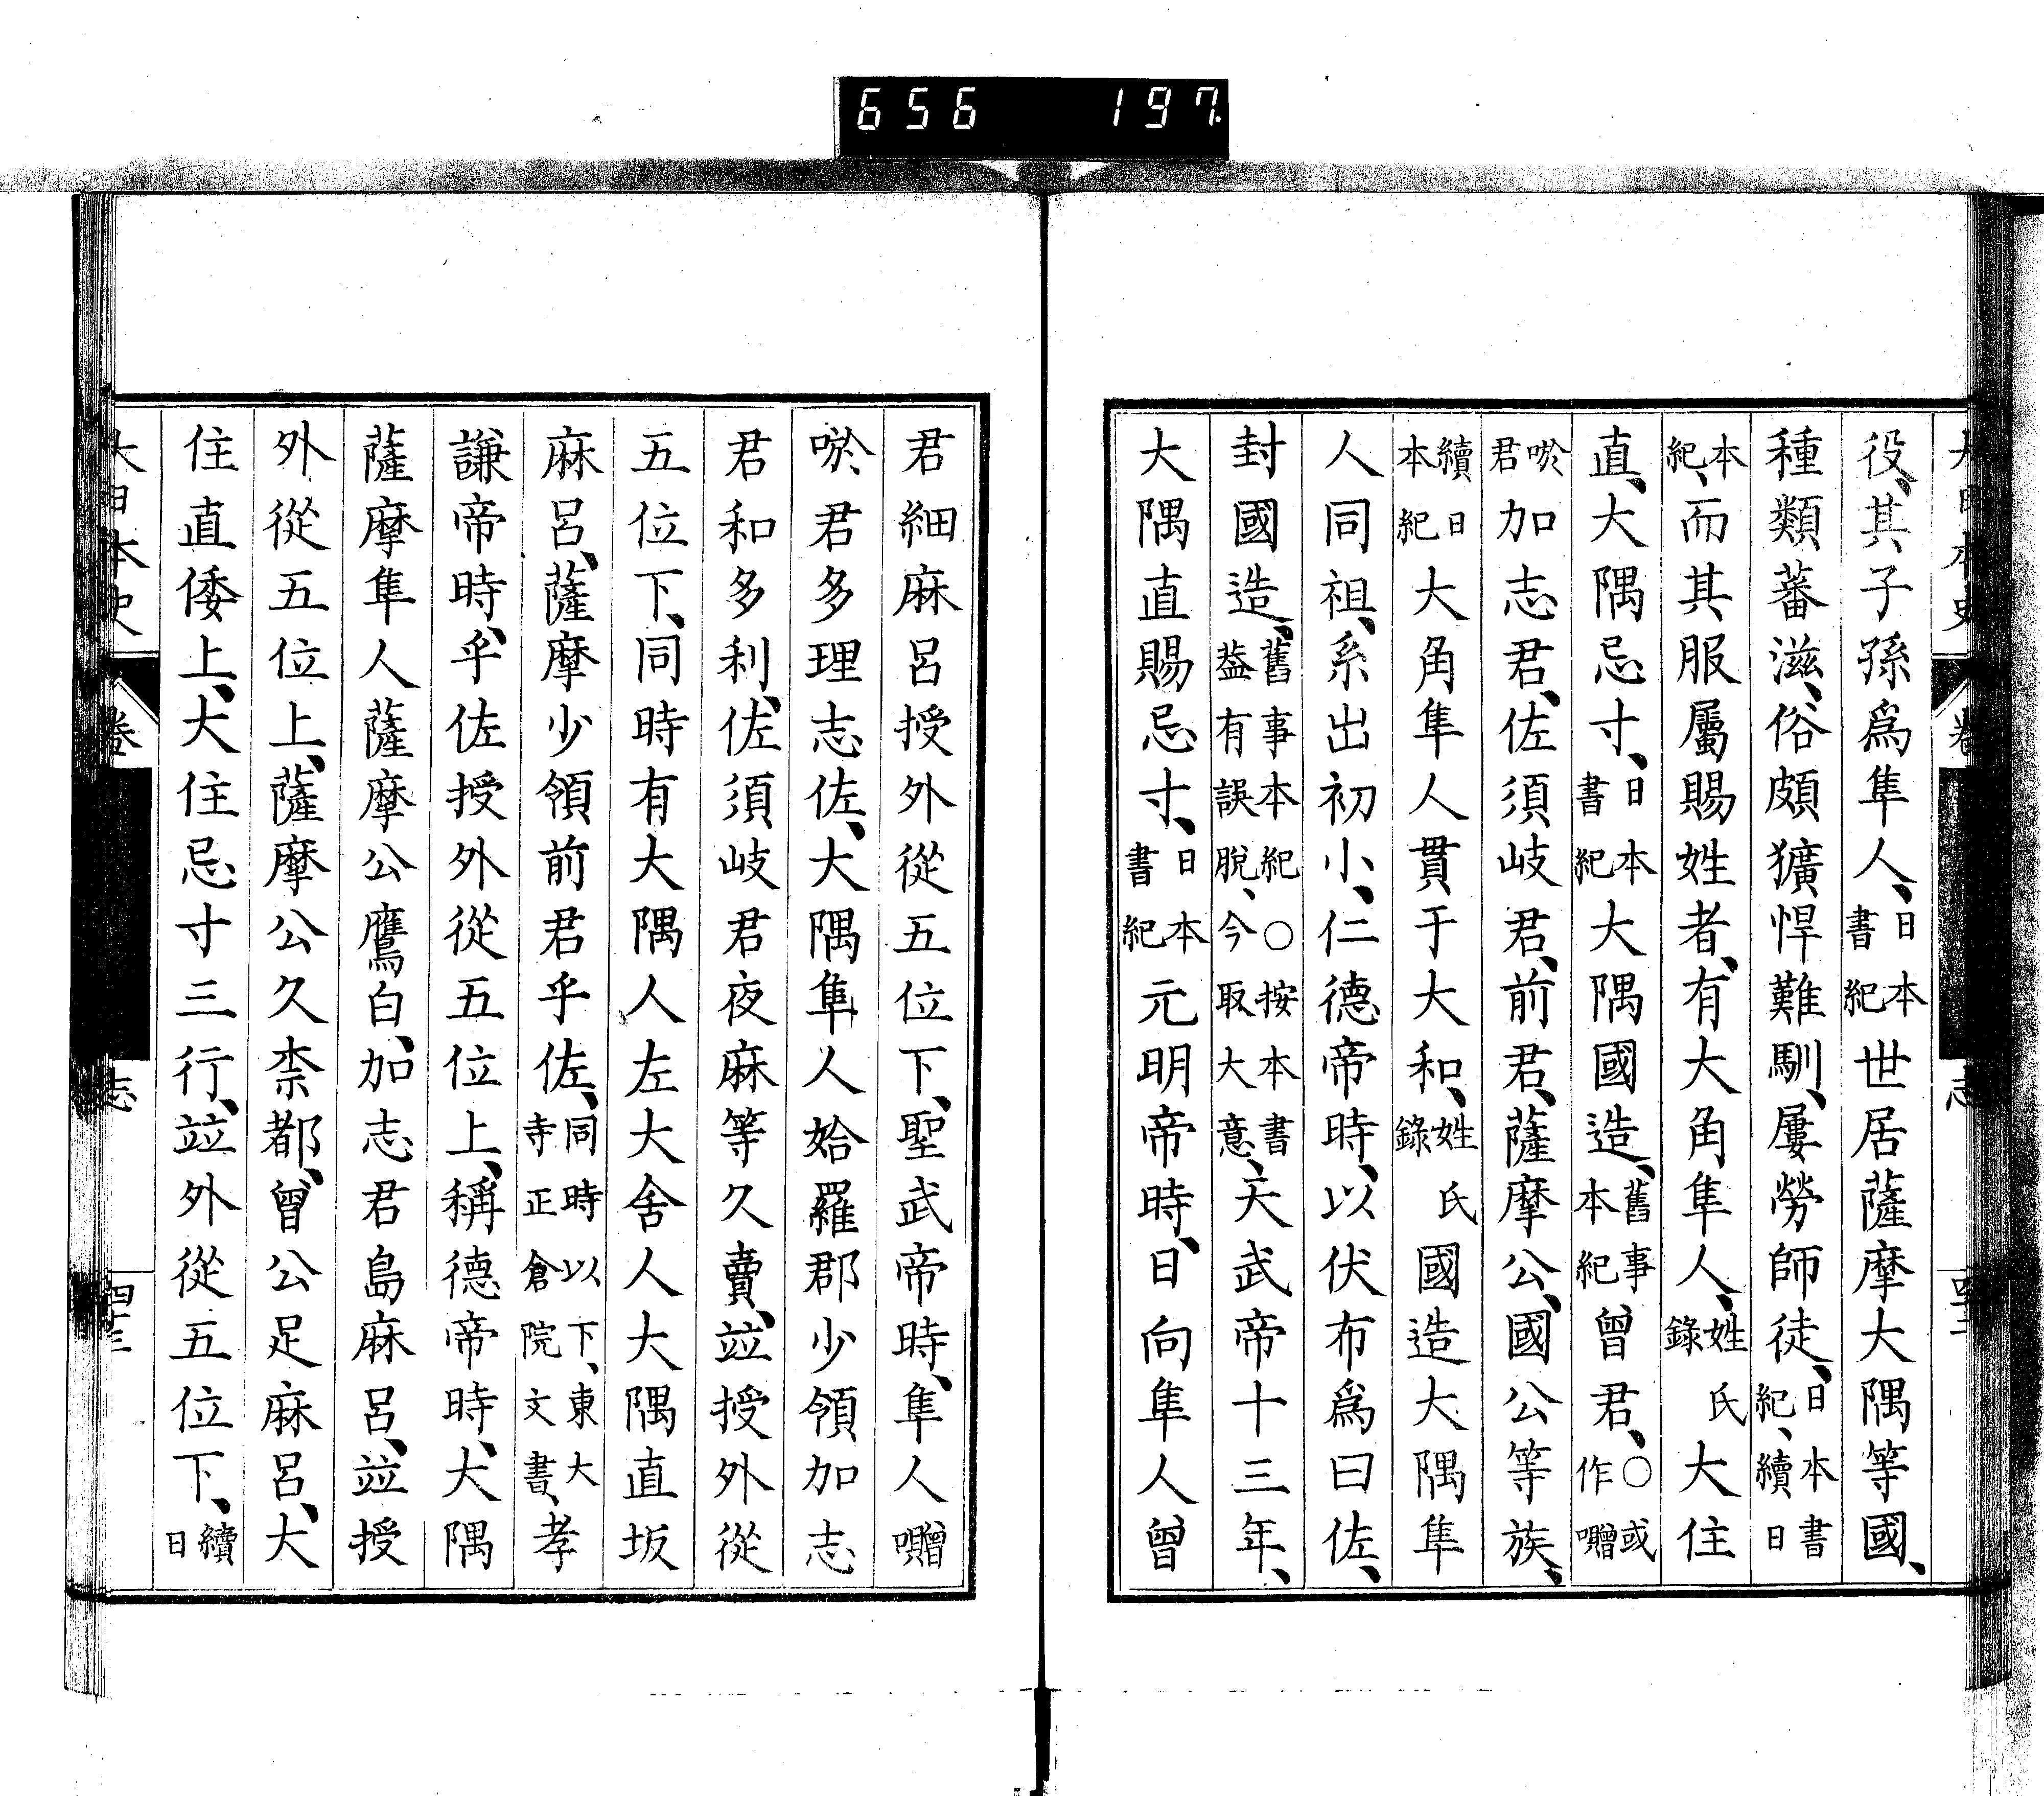 656 197.
大日本史 卷 志
役、其子孫爲隼人、日本書紀世居薩摩大隅等國、
種類蕃滋、俗頗獷悍難馴、屢勞師徒、日本書紀、續日
本紀、而其服屬賜姓者、有大角隼人、姓氏錄大住
直、大隅忌寸、日本書紀大隅國造、舊事本紀曾君、〇或作囎
唹君加志君、佐須岐君、前君、薩摩公、國公等族、
續日本紀大角隼人貫于大和、姓氏錄國造大隅隼
人同祖、系出初小、仁德帝時、以伏布爲曰佐、
封國造、舊事本紀〇按本書蓋有誤脫、今取大意、天武帝十三年、
大隅直賜忌寸、日本書紀元明帝時、日向隼人曾
君細麻呂授外從五位下、聖武帝時、隼人囎
唹君多理志佐、大隅隼人姶羅郡少領加志
君和多利、佐須岐君夜麻等久賣、竝授外從
五位下、同時有大隅人左大舍人大隅直坂
麻呂、薩摩少領前君乎佐、同時以下、東大寺正倉院文書、孝
謙帝時、乎佐授外從五位上、稱德帝時、大隅
薩摩隼人薩摩公鷹白、加志君島麻呂、竝授
外從五位上、薩摩公久柰都、曾公足麻呂、大
住直倭上、大住忌寸三行、竝外從五位下、續日
大日本史 卷 志 四十三